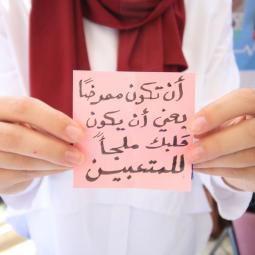 أن تكون ممرضًا
يعني أن يكون
قلبك ملجأً
للمتعبين